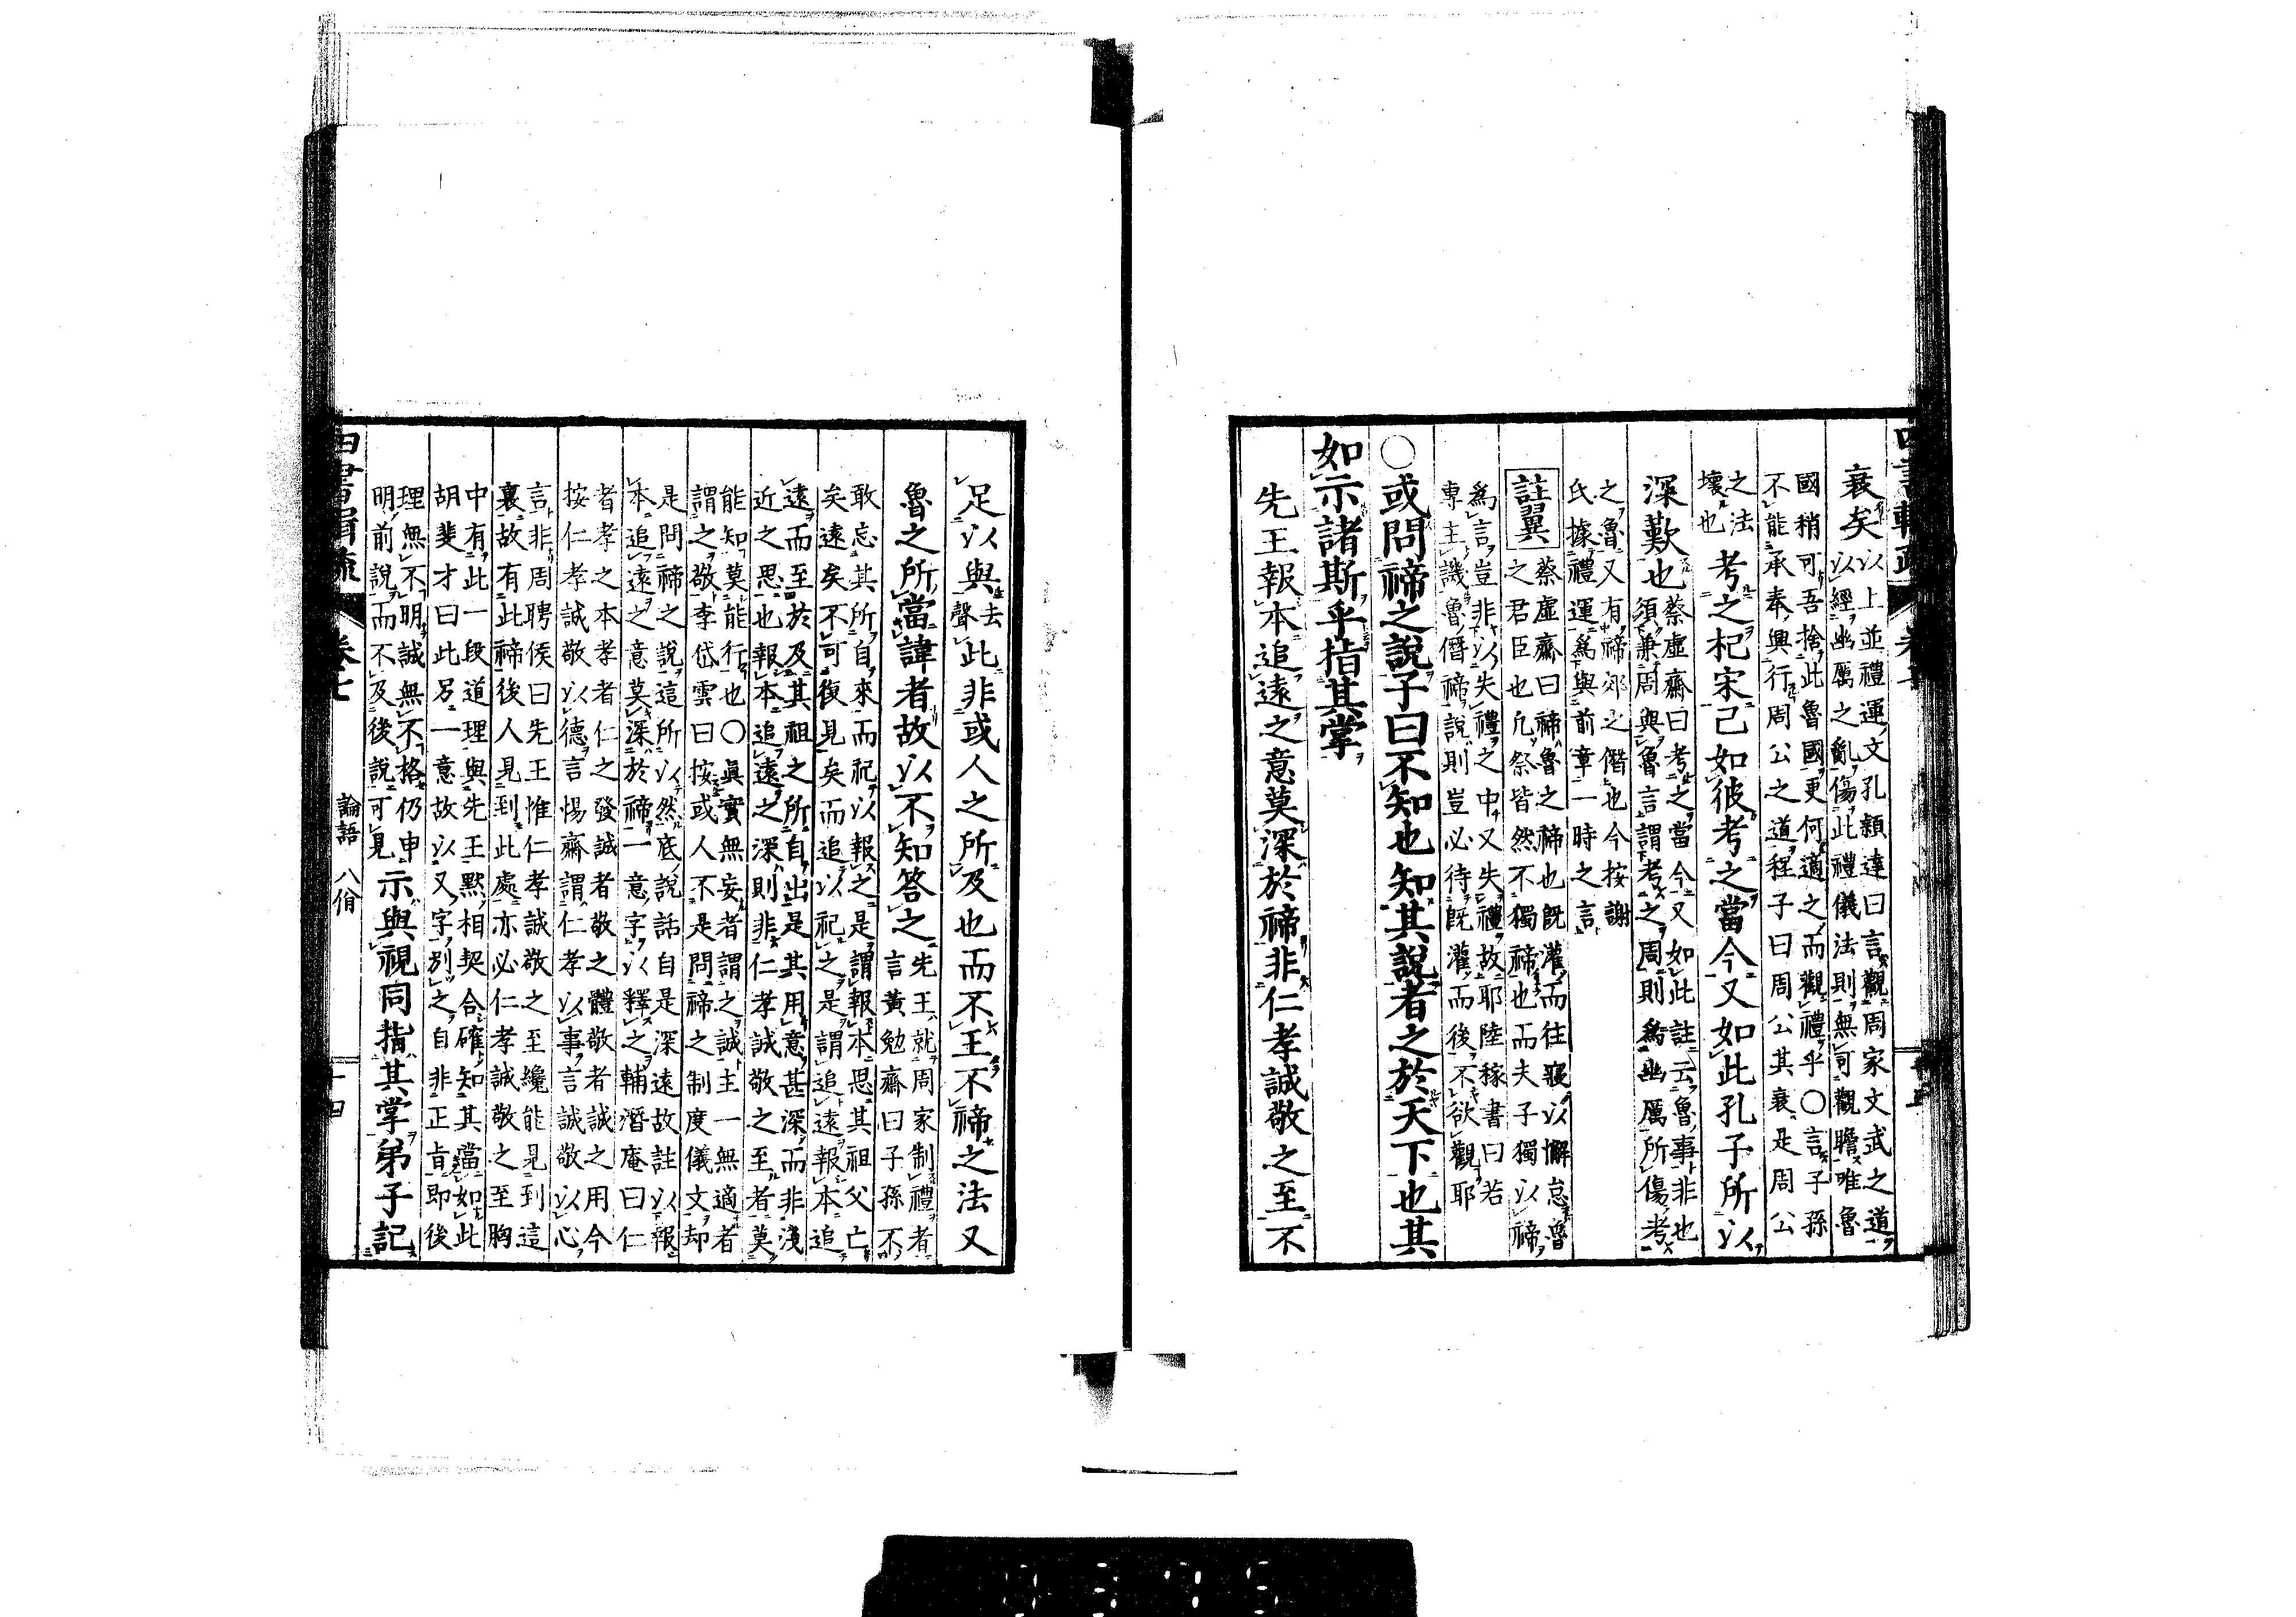 衰矣以上並禮運文孔穎達曰言觀周家文武之道
以經幽厲之亂傷此禮儀法則無可觀瞻唯魯
國稍可吾捨此魯國更何適之而觀禮乎〇言子孫
不能承奉興行周公之道程子曰周公其衰是周公
之法
壞也考之杞宋已如彼考之當今又如此孔子所以
深歎也蔡虛齋曰考之當今又如此註云魯事非也
須兼周與魯言謂考之周則為幽厲所傷考
之魯又有禘郊之僭也今按謝
氏據禮運為與前章一時之言
註翼蔡虛齋曰禘魯之禘也既灌而往寖以懈怠魯
之君臣也凡祭皆然不獨禘也而夫子獨以禘
為言豈非以失禮之中又失禮故耶陸稼書曰若
專主譏魯僭禘說則豈必待既灌而後不欲觀耶
〇或問禘之說子曰不知也知其說者之於天下也其
如示諸斯乎指其掌
先王報本追遠之意莫深於禘非仁孝誠敬之至不
足以與去聲此非或人之所及也而不王不禘之法又
魯之所當諱者故以不知答之先王就周家制禮者
言黃勉齋曰子孫不
敢忘其所自來而祀以報之是謂報本思其祖父亡
矣遠矣不可復見矣而追以祀之是謂追遠報本追
遠而至於及其祖之所自出是其用意甚深而非淺
近之思也報本追遠之深則非仁孝誠敬之至者莫
能知莫能行也〇眞實無妄者謂之誠主一無適者
謂之敬李岱雲曰按或人不是問禘之制度儀文却
是問禘之說這所以然底說話自是深遠故註以報
本追遠之意莫深於禘一意字以釋之輔潛庵曰仁
者孝之本孝者仁之發誠者敬之體敬者誠之用今
按仁孝誠敬以德言惕齋謂仁孝以事言誠敬以心
言非周聘侯曰先王惟仁孝誠敬之至纔能見到這
裏故有此禘後人見到此處亦必仁孝誠敬之至胸
中有此一段道理與先王默相契合確知其當如此
胡斐才曰此另一意故以又字別之自非正旨即後
理無不明誠無不格仍申
明前說而不及後說可見示與視同指其掌弟子記
四書輯疏
卷七
論語 八佾
十四